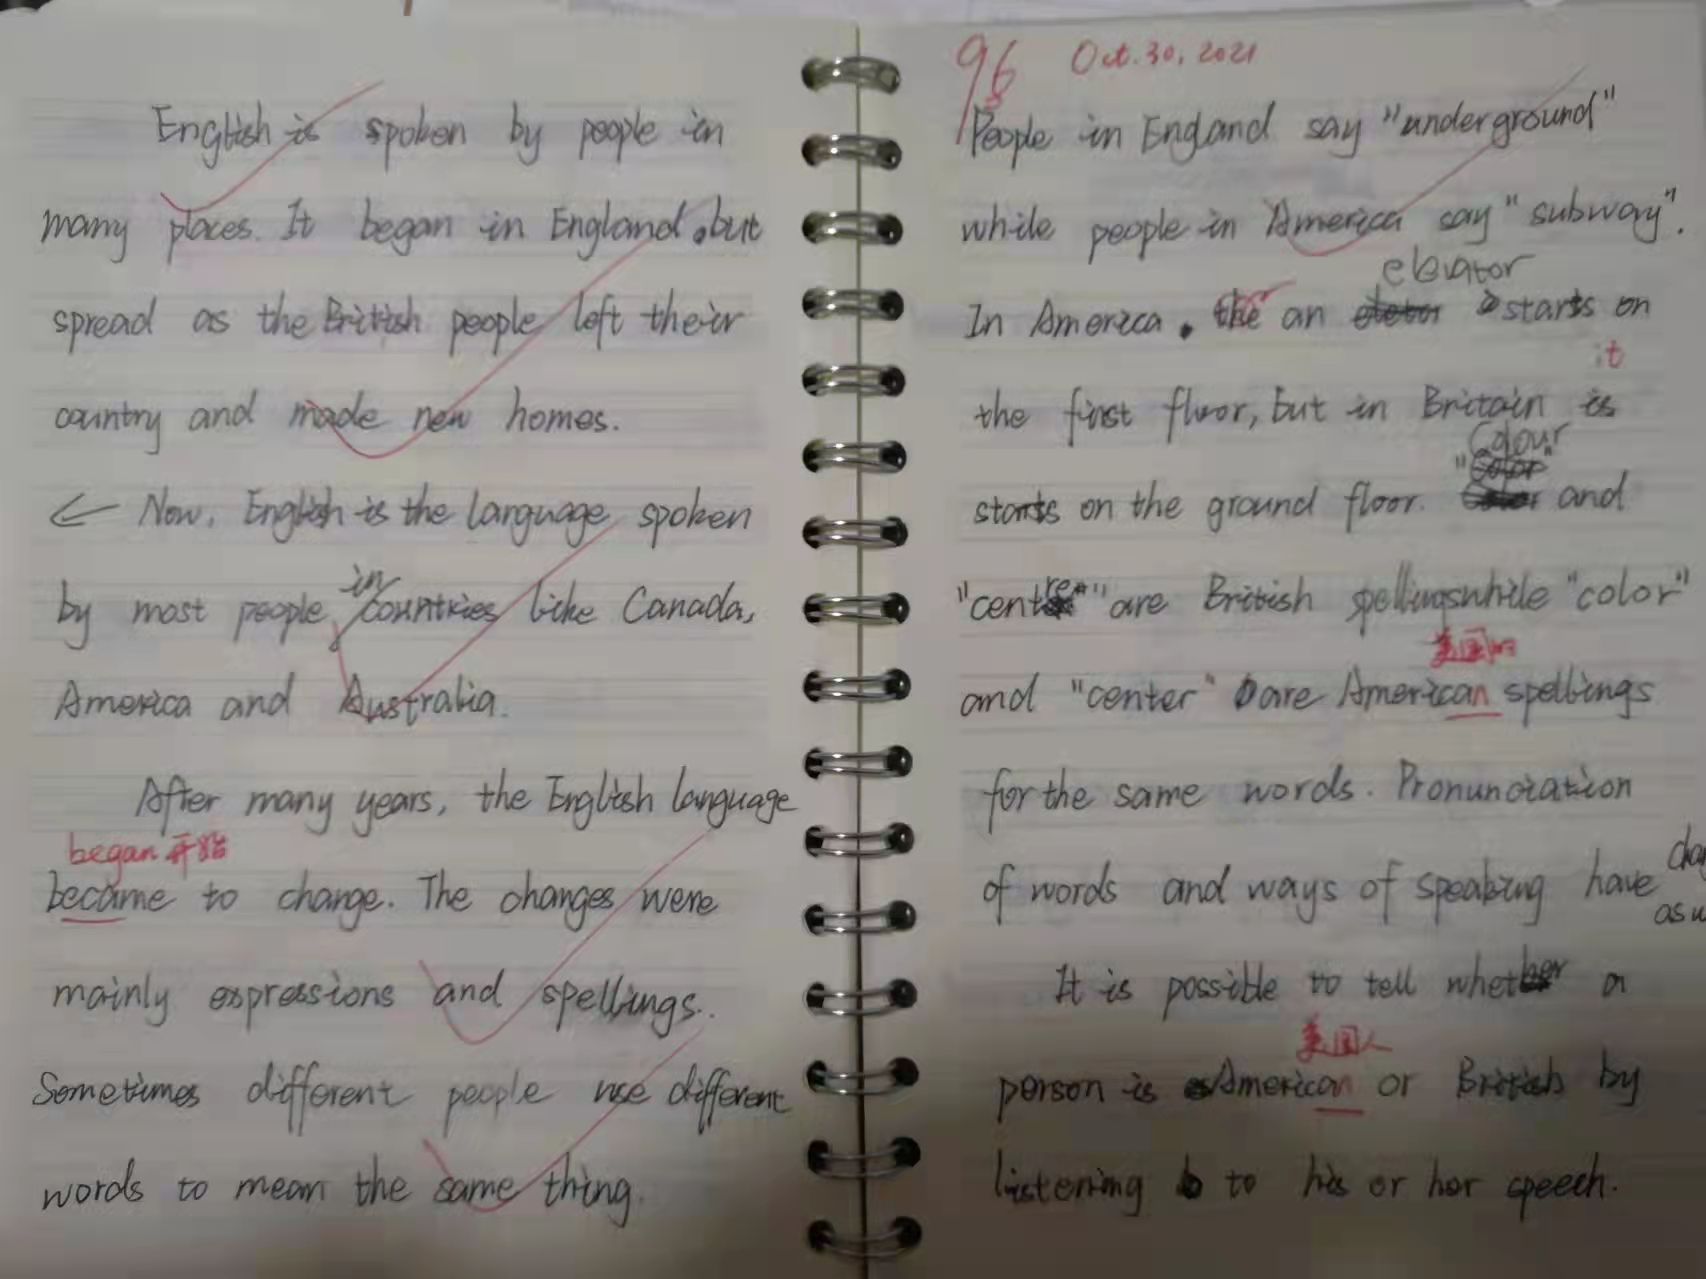 English is spoken by people in
many places. It began in England, but
spread as the British people left their
country and made new homes.
Now, English is the language spoken
in
by most people, countries like Canada,
America and Australia.
After many years, the English language
began 开始
became to change. The changes were
mainly expressions and spellings.
Sometimes different people use different
words to mean the same thing.
96 Oct. 30, 2021
People in England say "underground"
while people in America say "subway".
elevator
In America, the an starts on
it
the first floor, but in Britain is
Colour
starts on the ground floor. "Color" and
"centre" are British spellings while "color"
美国的
and "center" are American spellings
for the same words. Pronunciation
of words and ways of speaking have
It is possible to tell whether a
美国人
person is American or British by
listening to his or her speech.